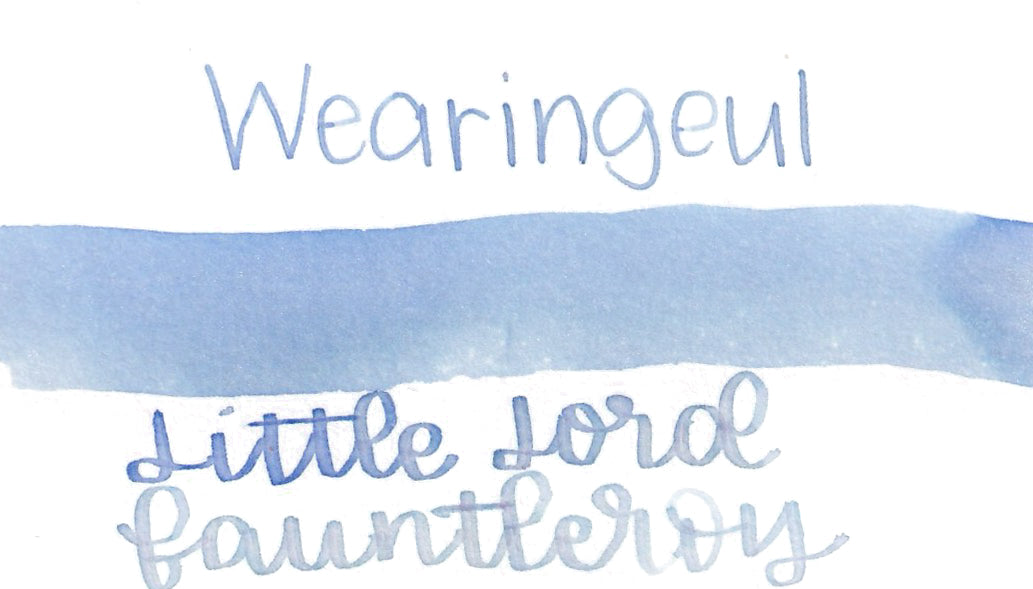 Wearingeul
Little Lord
Fauntleroy